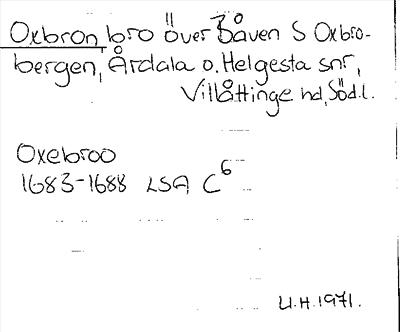 Oxbron, bro över Båven S Oxbro-
bergen, Årdala o. Helgesta snr,
Villåttinge hd, Söd.l.
Oxebroo
1683-1688 LSA C6
U.H.1971.